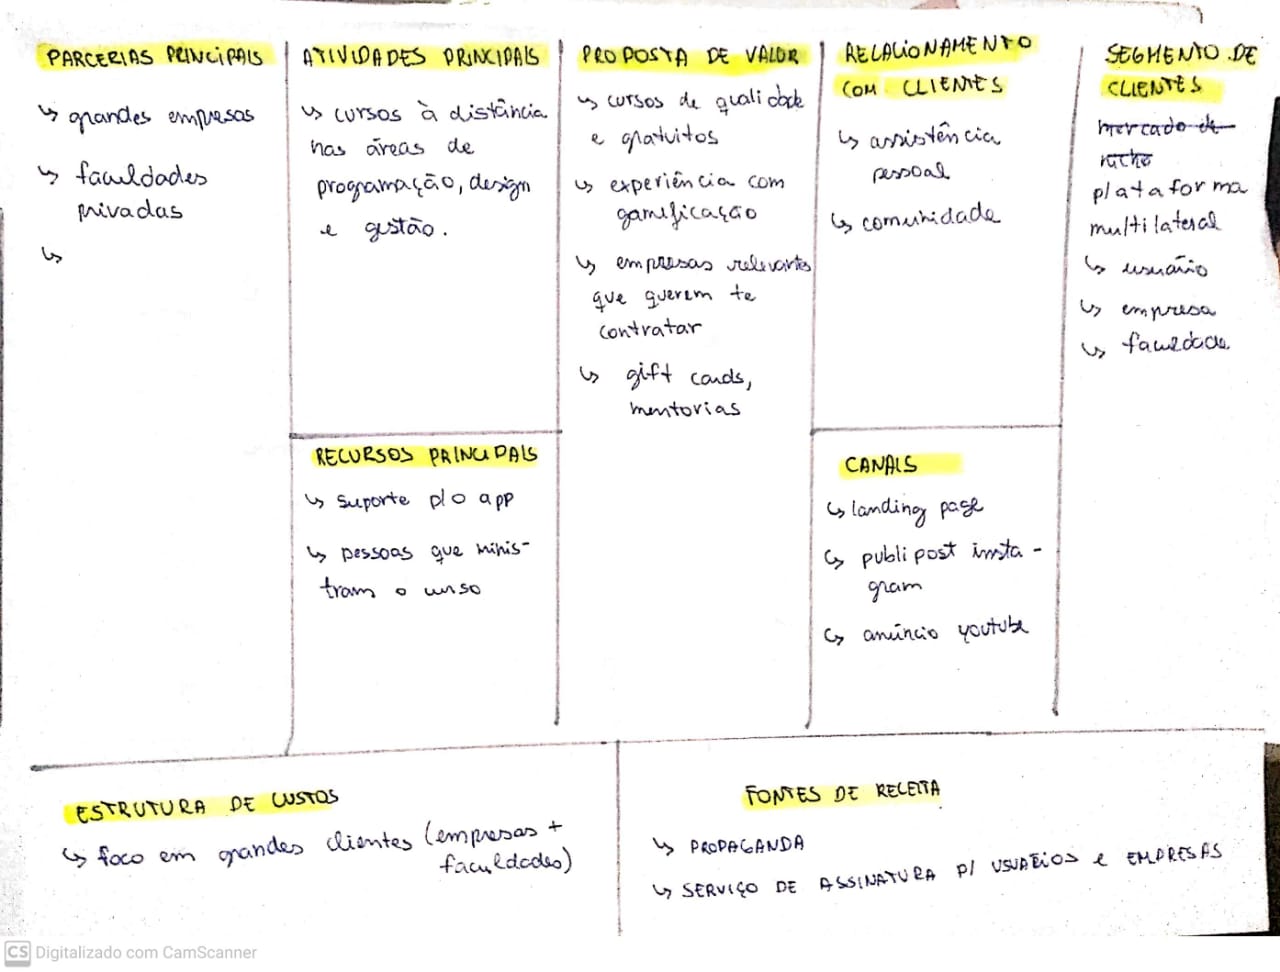 PARCERIAS PRINCIPAIS
↳ grandes empresas
↳ faculdades
privadas
↳
ATIVIDADES PRINCIPAIS
↳ cursos à distância
nas áreas de
programação, design
e gestão.
RECURSOS PRINCIPAIS
↳ suporte p/ o app
↳ pessoas que minis-
tram o curso
PROPOSTA DE VALOR
↳ cursos de qualidade
e gratuitos
↳ experiência com
gamificação
↳ empresas relevantes
que querem te
contratar
↳ gift cards,
mentorias
RELACIONAMENTO
COM CLIENTES
↳ assistência
pessoal
↳ comunidade
CANAIS
↳ landing page
↳ publi post insta-
gram
↳ anúncio youtube
SEGMENTO DE
CLIENTES
mercado de
nicho
plataforma
multilateral
↳ usuário
↳ empresa
↳ faculdade
ESTRUTURA DE CUSTOS
↳ foco em grandes clientes (empresas +
faculdades)
FONTES DE RECEITA
↳ PROPAGANDA
↳ SERVIÇO DE ASSINATURA P/ USUÁRIOS e EMPRESAS
CS Digitalizado com CamScanner